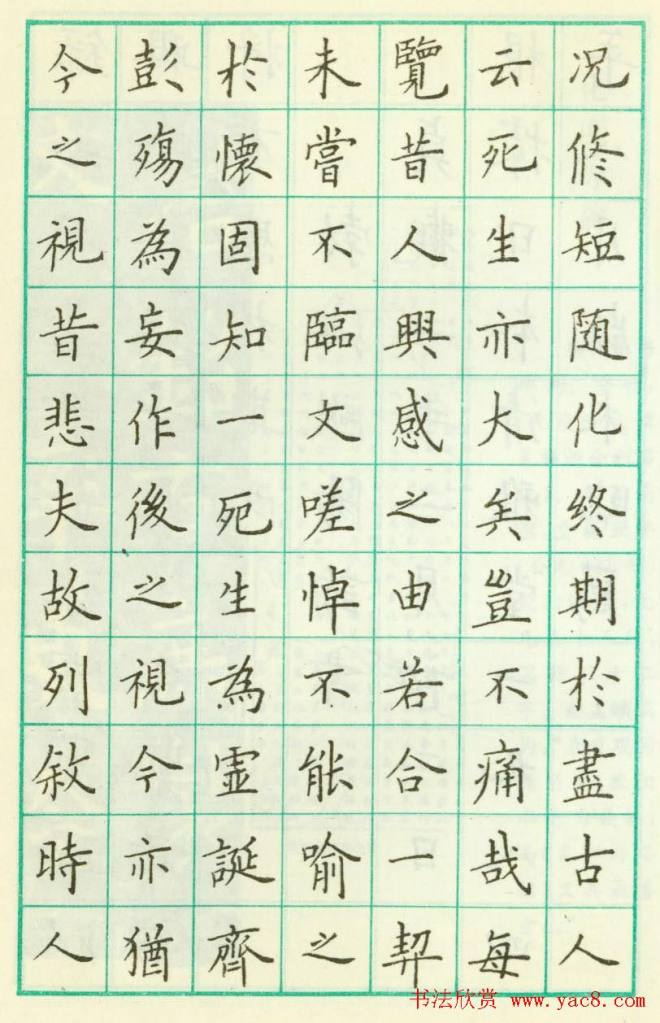 况修短随化終期於盡古人
云死生亦大矣豈不痛哉每
覽昔人興感之由若合一契
未嘗不臨文嗟悼不能喻之
於懷固知一死生為虛誕齊
彭殤為妄作後之視今亦猶
今之視昔悲夫故列敘時人
书法欣赏 www.yac8.com